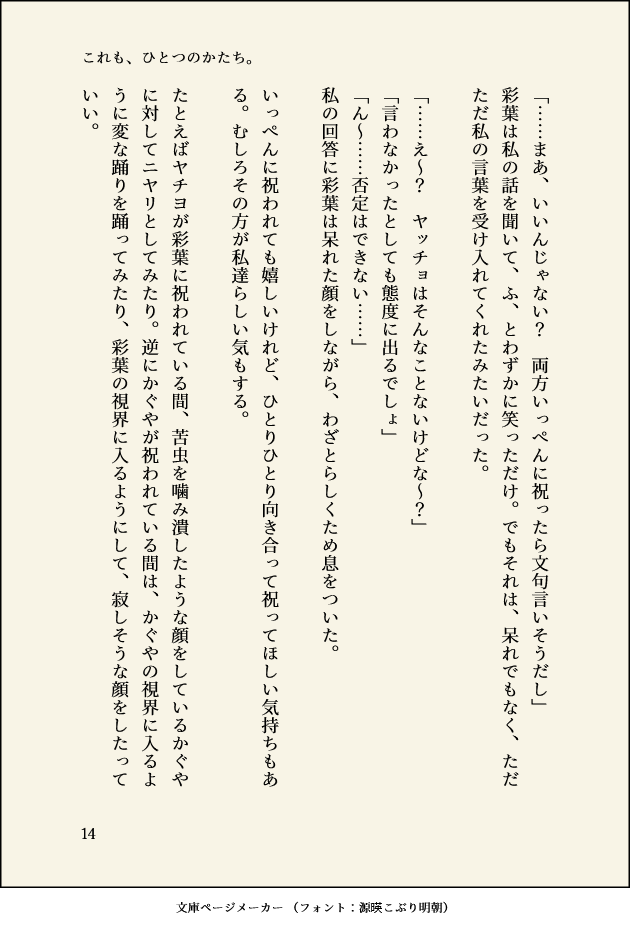 これも、ひとつのかたち。
「……まあ、いいんじゃない？　両方いっぺんに祝ったら文句言いそうだし」
彩葉は私の話を聞いて、ふ、とわずかに笑っただけ。でもそれは、呆れでもなく、ただ
ただ私の言葉を受け入れてくれたみたいだった。
「……え～？　ヤッチョはそんなことないけどな～？」
「言わなかったとしても態度に出るでしょ」
「ん～……否定はできない……」
私の回答に彩葉は呆れた顔をしながら、わざとらしくため息をついた。
いっぺんに祝われても嬉しいけれど、ひとりひとり向き合って祝ってほしい気持ちもあ
る。むしろその方が私達らしい気もする。
たとえばヤチヨが彩葉に祝われている間、苦虫を噛み潰したような顔をしているかぐや
に対してニヤリとしてみたり。逆にかぐやが祝われている間は、かぐやの視界に入るよ
うに変な踊りを踊ってみたり、彩葉の視界に入るようにして、寂しそうな顔をしたって
いい。
14
文庫ページメーカー（フォント：源暎こぶり明朝）